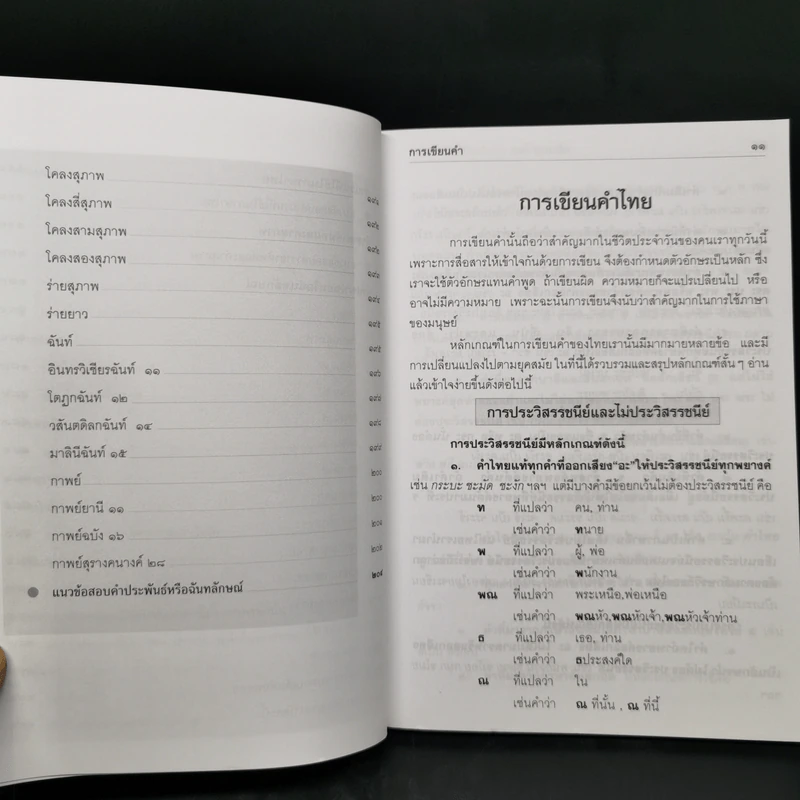 โคลงสุภาพ
โคลงสี่สุภาพ
โคลงสามสุภาพ
โคลงสองสุภาพ
ร่ายสุภาพ
ร่ายยาว
ฉันท์
อินทรวิเชียรฉันท์ ๑๑
โตฎกฉันท์ ๑๒
วสันตดิลกฉันท์ ๑๔
มาลินีฉันท์ ๑๕
กาพย์ ๒๐๐
กาพย์ยานี ๑๑
กาพย์ฉบัง ๑๖
กาพย์สุรางคนางค์ ๒๘
แนวข้อสอบคำประพันธ์หรือฉันทลักษณ์
การเขียนคำ ๑๑
การเขียนคำไทย
การเขียนคำนั้นถือว่าสำคัญมากในชีวิตประจำวันของคนเราทุกวันนี้
เพราะการสื่อสารให้เข้าใจกันด้วยการเขียน จึงต้องกำหนดตัวอักษรเป็นหลัก ซึ่ง
เราจะใช้ตัวอักษรแทนคำพูด ถ้าเขียนผิด ความหมายก็จะแปรเปลี่ยนไป หรือ
อาจไม่มีความหมาย เพราะฉะนั้นการเขียนจึงนับว่าสำคัญมากในการใช้ภาษา
ของมนุษย์
หลักเกณฑ์ในการเขียนคำของไทยเรานั้นมีมากมายหลายข้อ และมี
การเปลี่ยนแปลงไปตามยุคสมัย ในที่นี้ได้รวบรวมและสรุปหลักเกณฑ์สั้น ๆ อ่าน
แล้วเข้าใจง่ายขึ้นดังต่อไปนี้
การประวิสรรชนีย์และไม่ประวิสรรชนีย์
การประวิสรรชนีย์มีหลักเกณฑ์ดังนี้
๑. คำไทยแท้ทุกคำที่ออกเสียง"อะ"ให้ประวิสรรชนีย์ทุกพยางค์
เช่น กระบะ ชะมัด ชะงัก ฯลฯ แต่มีบางคำมีข้อยกเว้นไม่ต้องประวิสรรชนีย์ คือ
ท ที่แปลว่า คน, ท่าน
เช่นคำว่า ทนาย
พ ที่แปลว่า ผู้, พ่อ
เช่นคำว่า พนักงาน
พณ ที่แปลว่า พระเหนือ,พ่อเหนือ
เช่นคำว่า พณหัว,พณหัวเจ้า,พณหัวเจ้าท่าน
ธ ที่แปลว่า เธอ, ท่าน
เช่นคำว่า ธประสงค์ใด
ณ ที่แปลว่า ใน
เช่นคำว่า ณ ที่นั้น , ณ ที่นี้